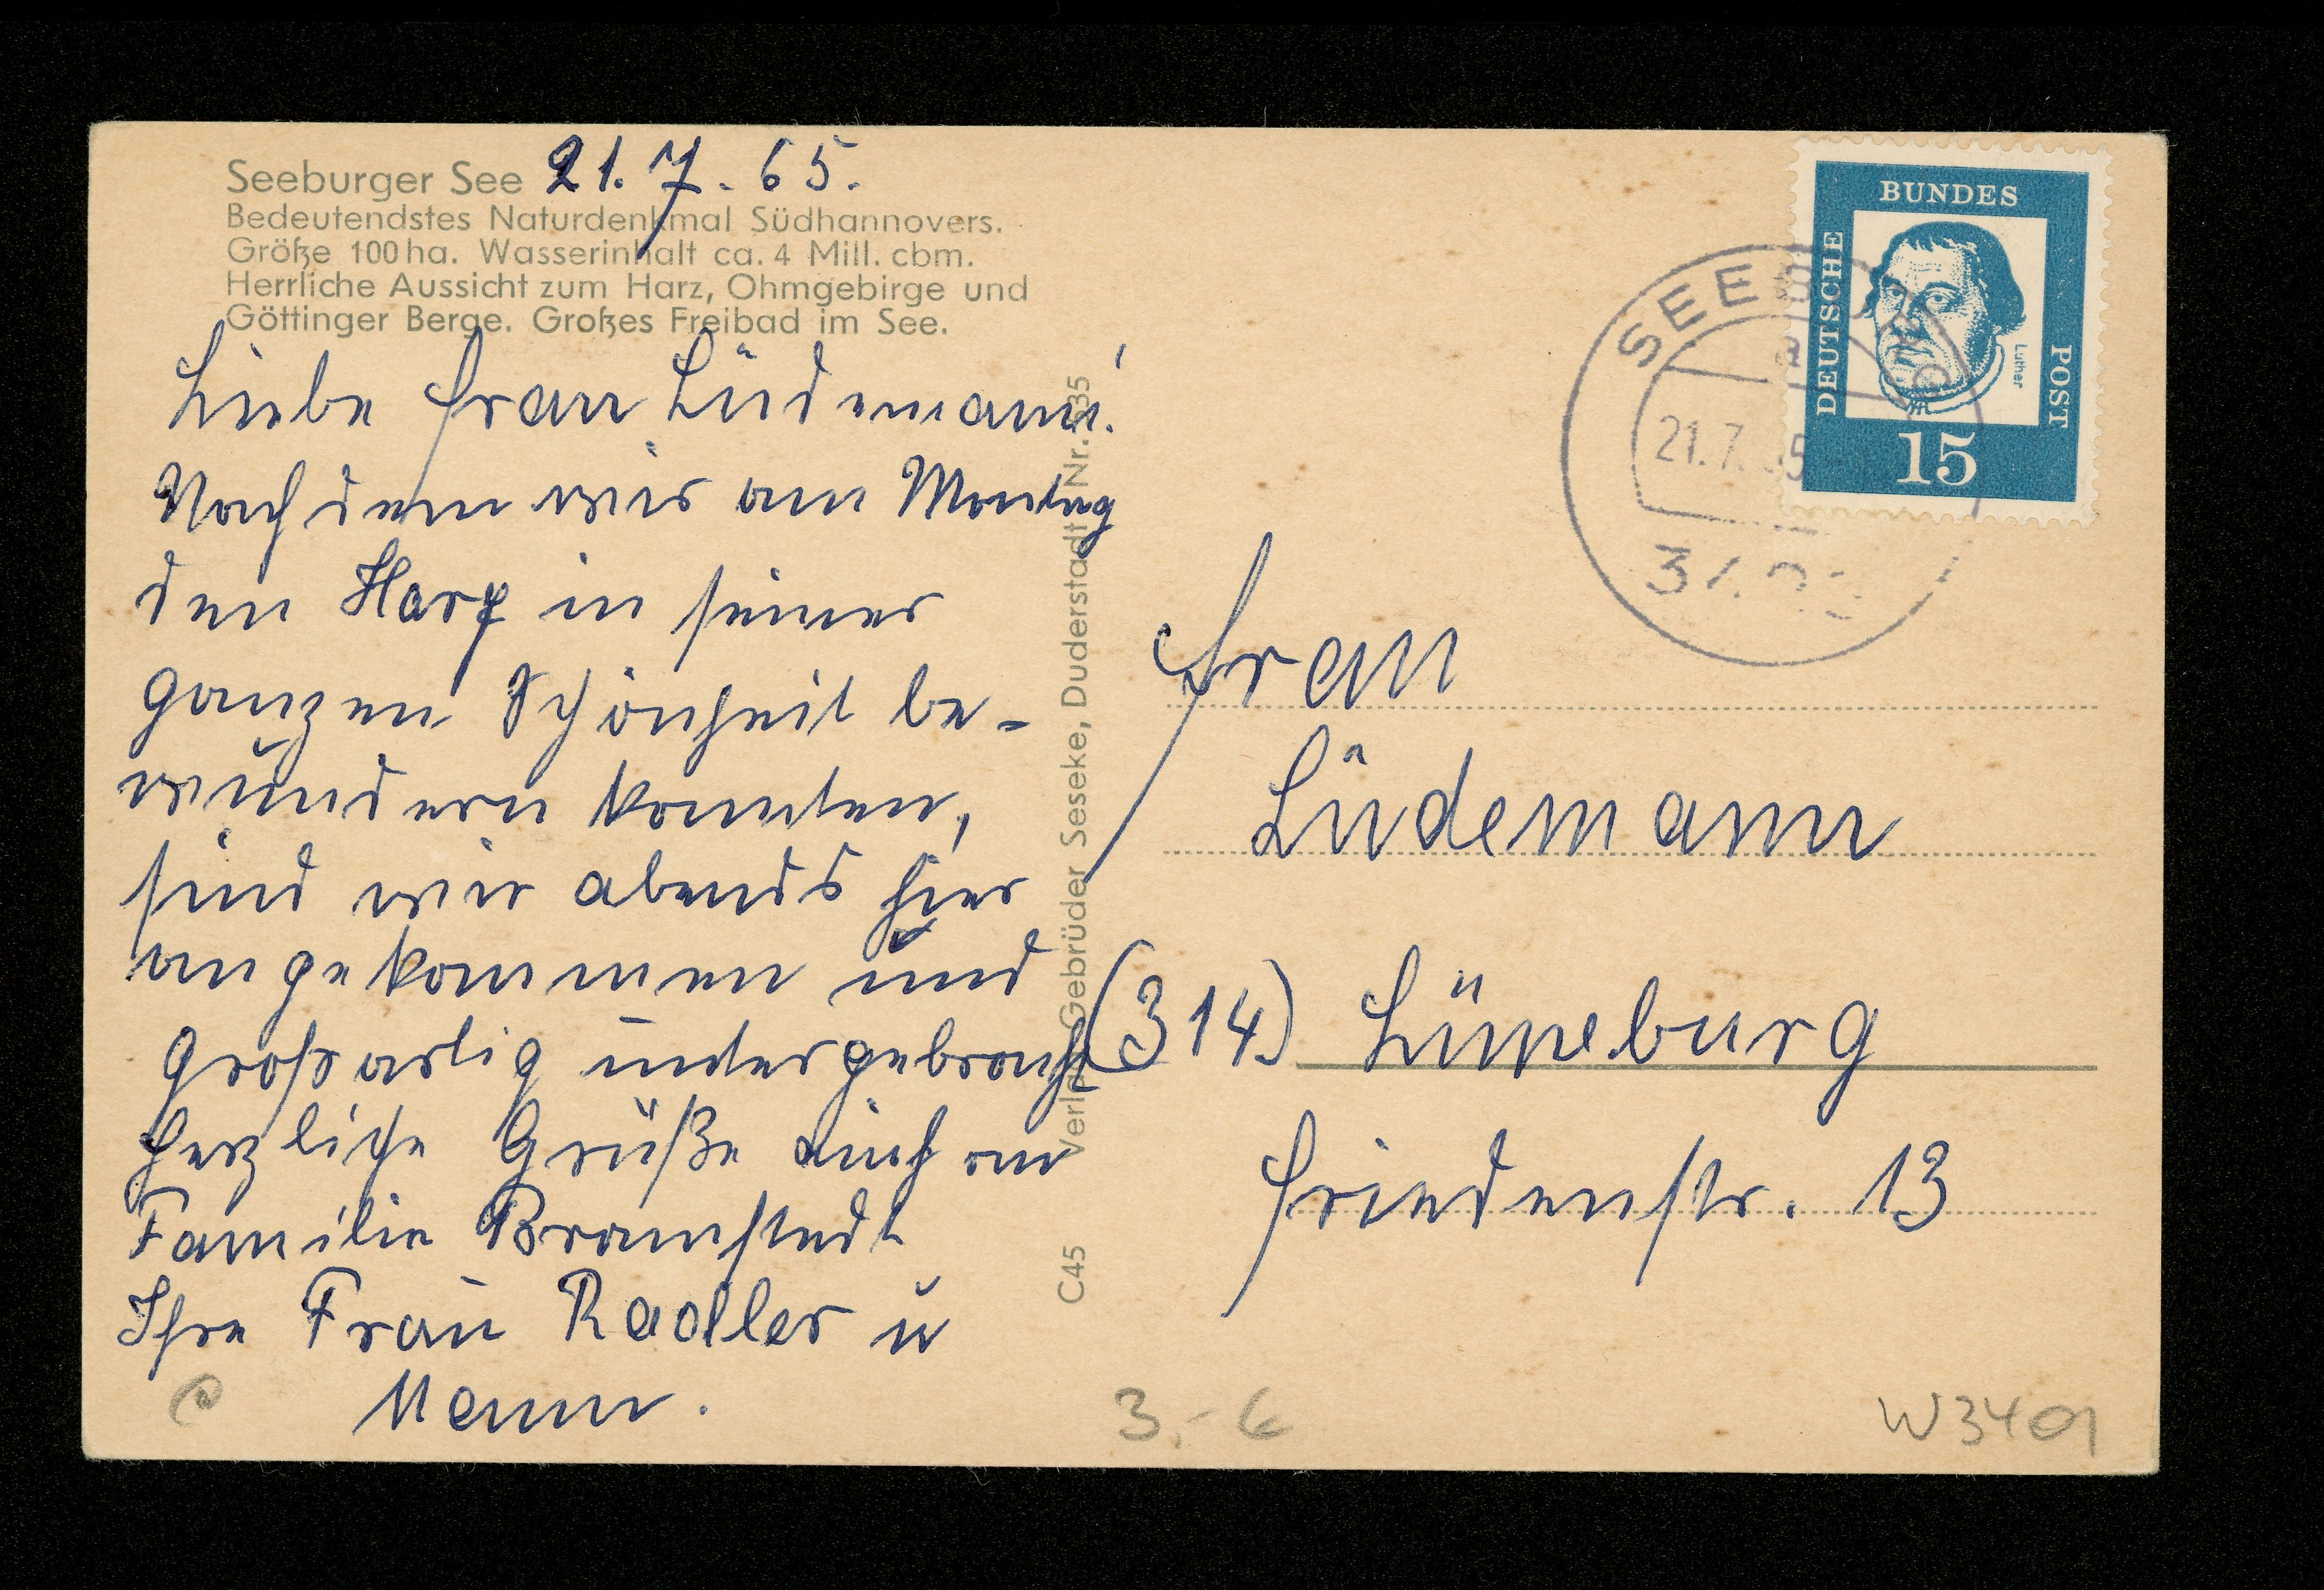 Seeburger See 21.7.65.
Bedeutendstes Naturdenkmal Südhannovers.
Größe 100 ha. Wasserinhalt ca. 4 Mill. cbm.
Herrliche Aussicht zum Harz, Ohmgebirge und
Göttinger Berge. Großes Freibad im See.
Liebe Frau Lüdemann!
Nachdem wir am Montag
den Harz in seiner
ganzen Schönheit be-
wundern konnten,
sind wir abends hier
angekommen und
großartig untergebracht
herzliche Grüße auch an
Familie Bramstedt
Ihre Frau Radller u
Mann.
C45 Verlag Gebrüder Seseke, Duderstadt Nr. 635
BUNDES
DEUTSCHE
POST
Luther
15
SEEBURG
a
21.7.65
Frau
Lüdemann
(314) Lüneburg
Friedenstr. 13
3,- €
W3401